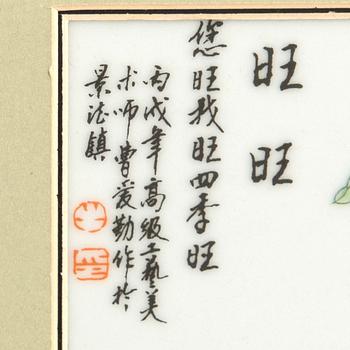 旺旺
您旺我旺四季旺
丙戌年高级工藝美
术师曹爱勤作於
景德鎮